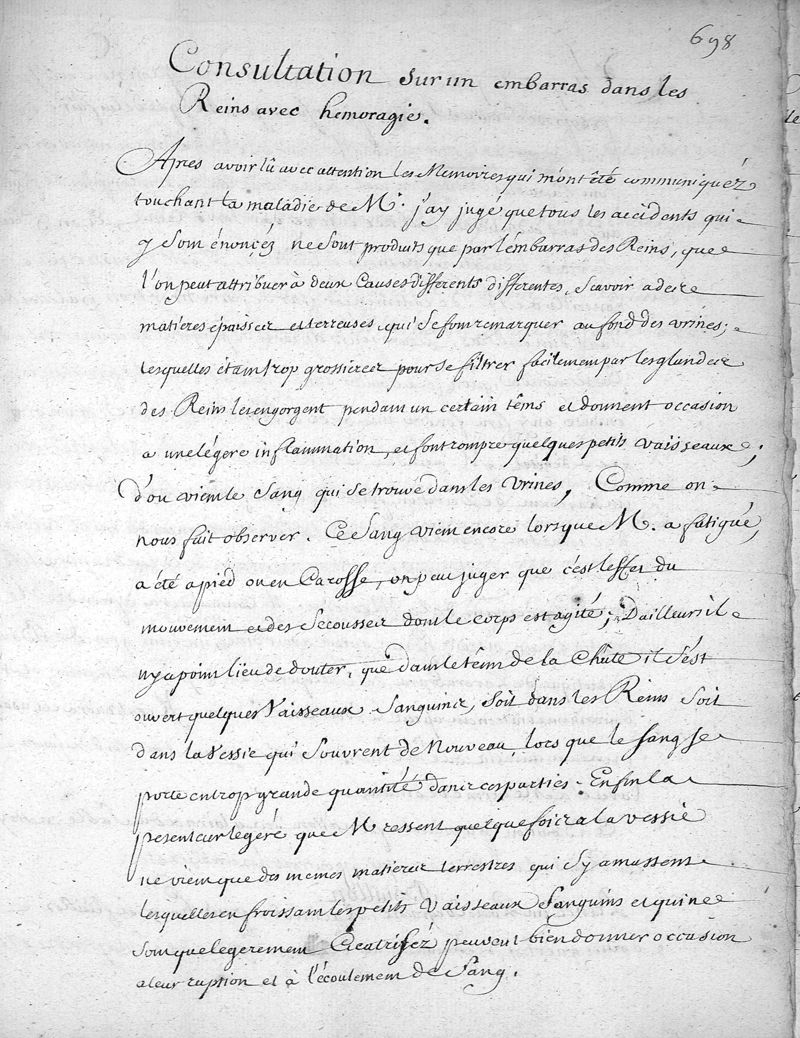 698
Consultation sur un embarras dans les
Reins avec hemoragie.
Apres avoir lû avec attention les Memoires qui m'ont été communiquéz
touchant la maladie de M. j'ay jugé que tous les accidents qui
y sont énoncés ne sont produits que par l'embarras des Reins, que
l'on peut attribuer à deux Causes differents differentes, scavoir a des
matieres épaisses et terreuses qui se font remarquer au fond des vrines;
lesquelles étant trop grossieres pour se filtrer facilement par les glandes
des Reins les engorgent pendant un certain têms et donnent occasion
a une légére inflammation, et font rompre quelques petits vaisseaux;
d'ou vient le Sang qui se trouve dans les vrines, Comme on
nous fait observer. Ce Sang vient encore lorsque M. a fatigué,
a été a pied ou en Carosse, on peu juger que c'est l'effet du
mouvement et des Secousses dont le corps est agité; D'ailleurs il
n'y a point lieu de douter, que dans le têms de la Chûte il s'est
ouvert quelques Vaisseaux Sanguins, soit dans les Reins soit
dans la Vessie qui s'ouvrent de Nouveau, lors que le sang se
porte en trop grande quantité dans ces parties. Enfin la
pesenteur legére que M. ressent quelque fois a la vessie
ne vient que des mémes matieres terrestres qui s'y amassent
lesquelles en froissant les petits Vaisseaux Sanguins et qui ne
sont que legerement Cicatriséz peuvent bien donner occasion
a leur ruption et à l'écoulement de Sang.